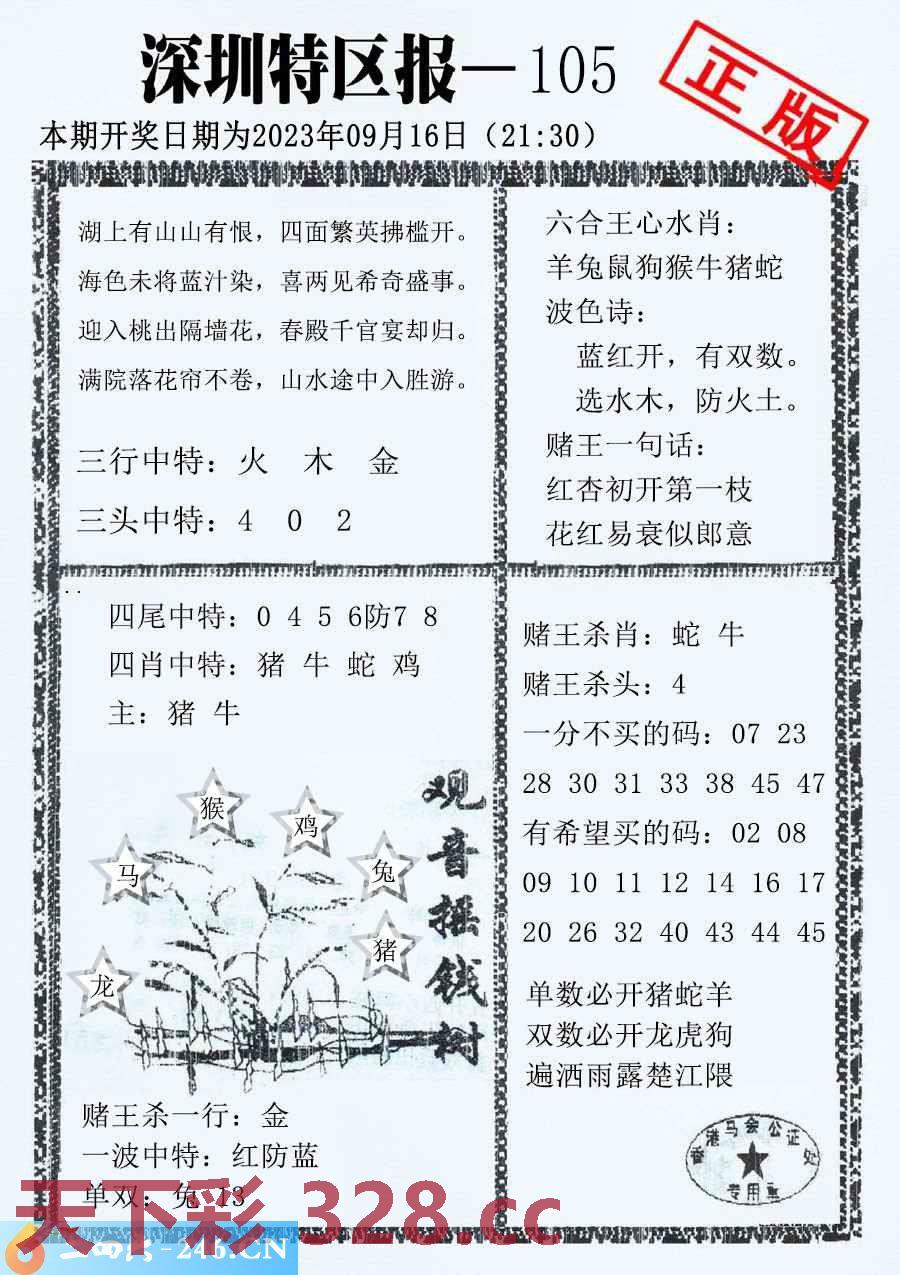 深圳特区报—105
正版
本期开奖日期为2023年09月16日（21:30）
湖上有山山有恨，四面繁英拂槛开。
海色未将蓝汁染，喜两见希奇盛事。
迎入桃出隔墙花，春殿千官宴却归。
满院落花帘不卷，山水途中入胜游。
三行中特：火 木 金
三头中特：4 0 2
六合王心水肖：
羊兔鼠狗猴牛猪蛇
波色诗：
蓝红开，有双数。
选水木，防火土。
赌王一句话：
红杏初开第一枝
花红易衰似郎意
四尾中特：0 4 5 6防7 8
四肖中特：猪 牛 蛇 鸡
主：猪 牛
猴
鸡
马
兔
猪
龙
观音摇钱树
赌王杀一行：金
一波中特：红防蓝
单双：兔 13
赌王杀肖：蛇 牛
赌王杀头：4
一分不买的码：07 23
28 30 31 33 38 45 47
有希望买的码：02 08
09 10 11 12 14 16 17
20 26 32 40 43 44 45
单数必开猪蛇羊
双数必开龙虎狗
遍洒雨露楚江隈
香港马会公证处
专用章
天下彩 328.cc
-246.CN